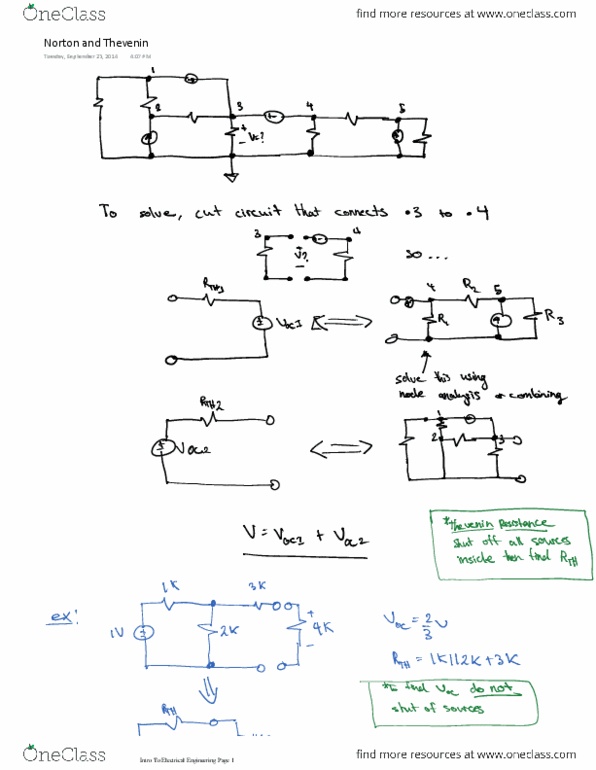 OneClass
find more resources at www.oneclass.com
Norton and Thevenin
Tuesday, September 23, 2014 4:07 PM
1
2 3 4 5
+
- Vc?
To solve, cut circuit that connects •3 to •4
3 4
+
V?
-
so ...
RTH1
Voc1
4 R2 5
R1
R3
solve this using
node analysis or combining
RTH2
Voc2
1
2 3
V = Voc1 + Voc2
*Thevenin Resistance
shut off all sources
inside then find RTH
ex:
1K 3K
1V
2K
+
4K
-
Voc = 2/3 V
RTH = 1K||2K+3K
*To find Voc do not
shut of sources
RTH
OneClass
Intro To Electrical Engineering Page 1
find more resources at www.oneclass.com